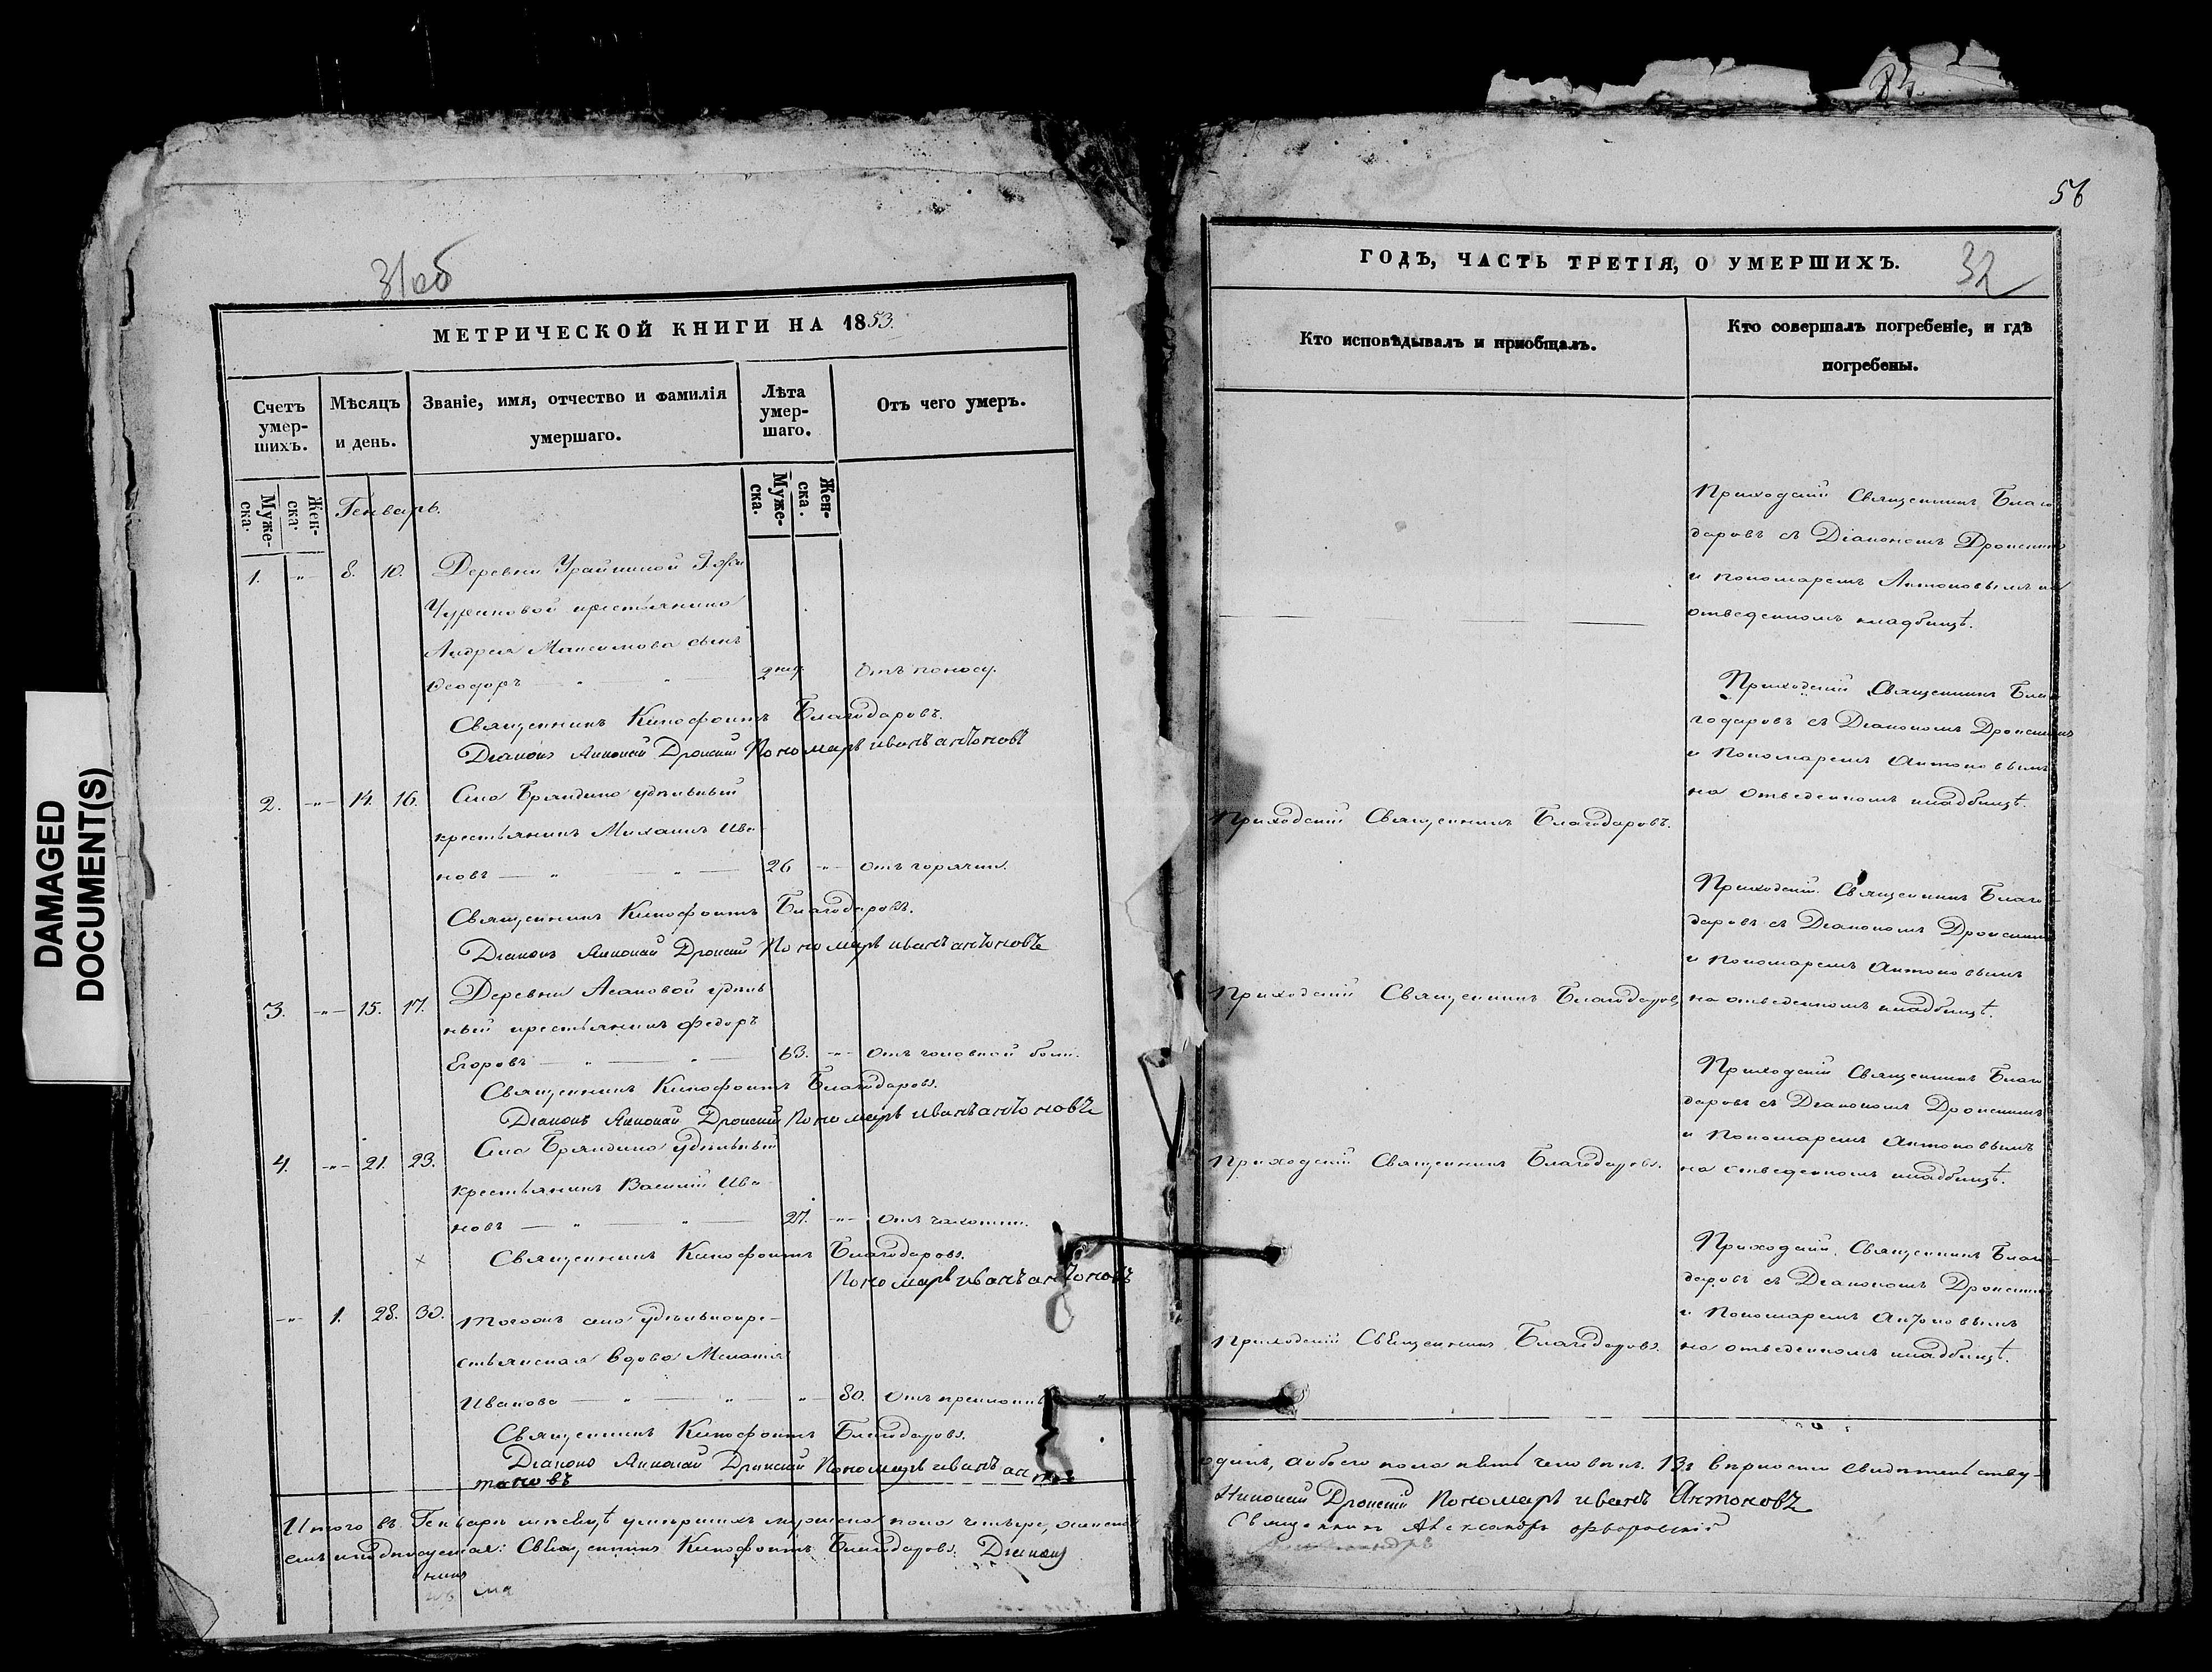 DAMAGED
DOCUMENT(S)
31об
МЕТРИЧЕСКОЙ КНИГИ НА 1853.
Счетъ умер-шихъ.
Мѣсяцъ и день.
Званіе, имя, отчество и фамилія умершаго.
Лѣта умер-шаго.
Отъ чего умеръ.
Муже-ска.
Жен-ска.
Генварь.
Муже-ска.
Жен-ска.
1. -"- 8. 10. Деревни
крестьянина
Андрея Максимова сынъ
Ѳеодоръ — " — " — Отъ поносу.
Священникъ Ксенофонтъ Благодаровъ.
Діаконъ Дронскій Пономарь иванъ антоновъ
2. -"- 14. 16. Села Бряндина удѣльный
крестьянинъ Михаилъ Ива-
новъ — " — " — 26 -"- Отъ горячки.
Священникъ Ксенофонтъ Благодаровъ.
Діаконъ Дронскій Пономарь иванъ антоновъ
3. -"- 15. 17. Деревни Асановой удѣль
ный крестьянинъ Федоръ
Егоровъ — " — " — 63. -"- Отъ головной боли.
Священникъ Ксенофонтъ Благодаровъ.
Діаконъ Дронскій Пономарь иванъ антоновъ
4. -"- 21. 23. Села Бряндина удѣльный
крестьянинъ Василій Ива-
новъ — " — " — 27. -"- Отъ чахотки.
Священникъ Ксенофонтъ Благодаровъ.
Пономарь иванъ антоновъ
-"- 1. 28. 30. Тогожъ села удѣльнокре-
стьянская вдова Меланія
Иванова — " — " — " — 80. Отъ
Священникъ Ксенофонтъ Благодаровъ.
Діаконъ Дронскій Пономарь иванъ ан
тоновъ
Итого въ Генварѣ мѣсяцѣ умершихъ мужеска пола четыре, женска
Священникъ Ксенофонтъ Благодаровъ. Діаконъ
56
ГОДЪ, ЧАСТЬ ТРЕТІЯ, О УМЕРШИХЪ.
32
Кто исповѣдывалъ и пріобщалъ.
Кто совершалъ погребеніе, и гдѣ погребены.
Приходскій Священникъ Благо
даровъ съ Діакономъ Дронскимъ
и пономаремъ Антоновымъ на
отведенномъ кладбищѣ.
Приходскій Священникъ Бла-
годаровъ съ Діакономъ Дронскимъ
и Пономаремъ Антоновымъ
на отведенномъ кладбищѣ.
Приходскій Священникъ Благодаровъ.
Приходскій Священникъ Благо-
даровъ съ Діакономъ Дронскимъ
и Пономаремъ Антоновымъ
Приходскій Священникъ Благодаровъ
на отведенномъ кладбищѣ.
Приходскій Священникъ Благо
даровъ съ Діакономъ Дронскимъ
и Пономаремъ Антоновымъ
Приходскій Священникъ Благодаровъ.
на отведенномъ кладбищѣ.
Приходскій Священникъ Благо-
даровъ съ Діакономъ Дронскимъ
и Пономаремъ Антоновымъ
Приходскій Священникъ Благодаровъ.
на отведенномъ кладбищѣ.
одинъ, а обоего пола пять человѣкъ. Въ вѣрности свидѣтельству-
Дронскій Пономарь иванъ Антоновъ
Священникъ Александръ